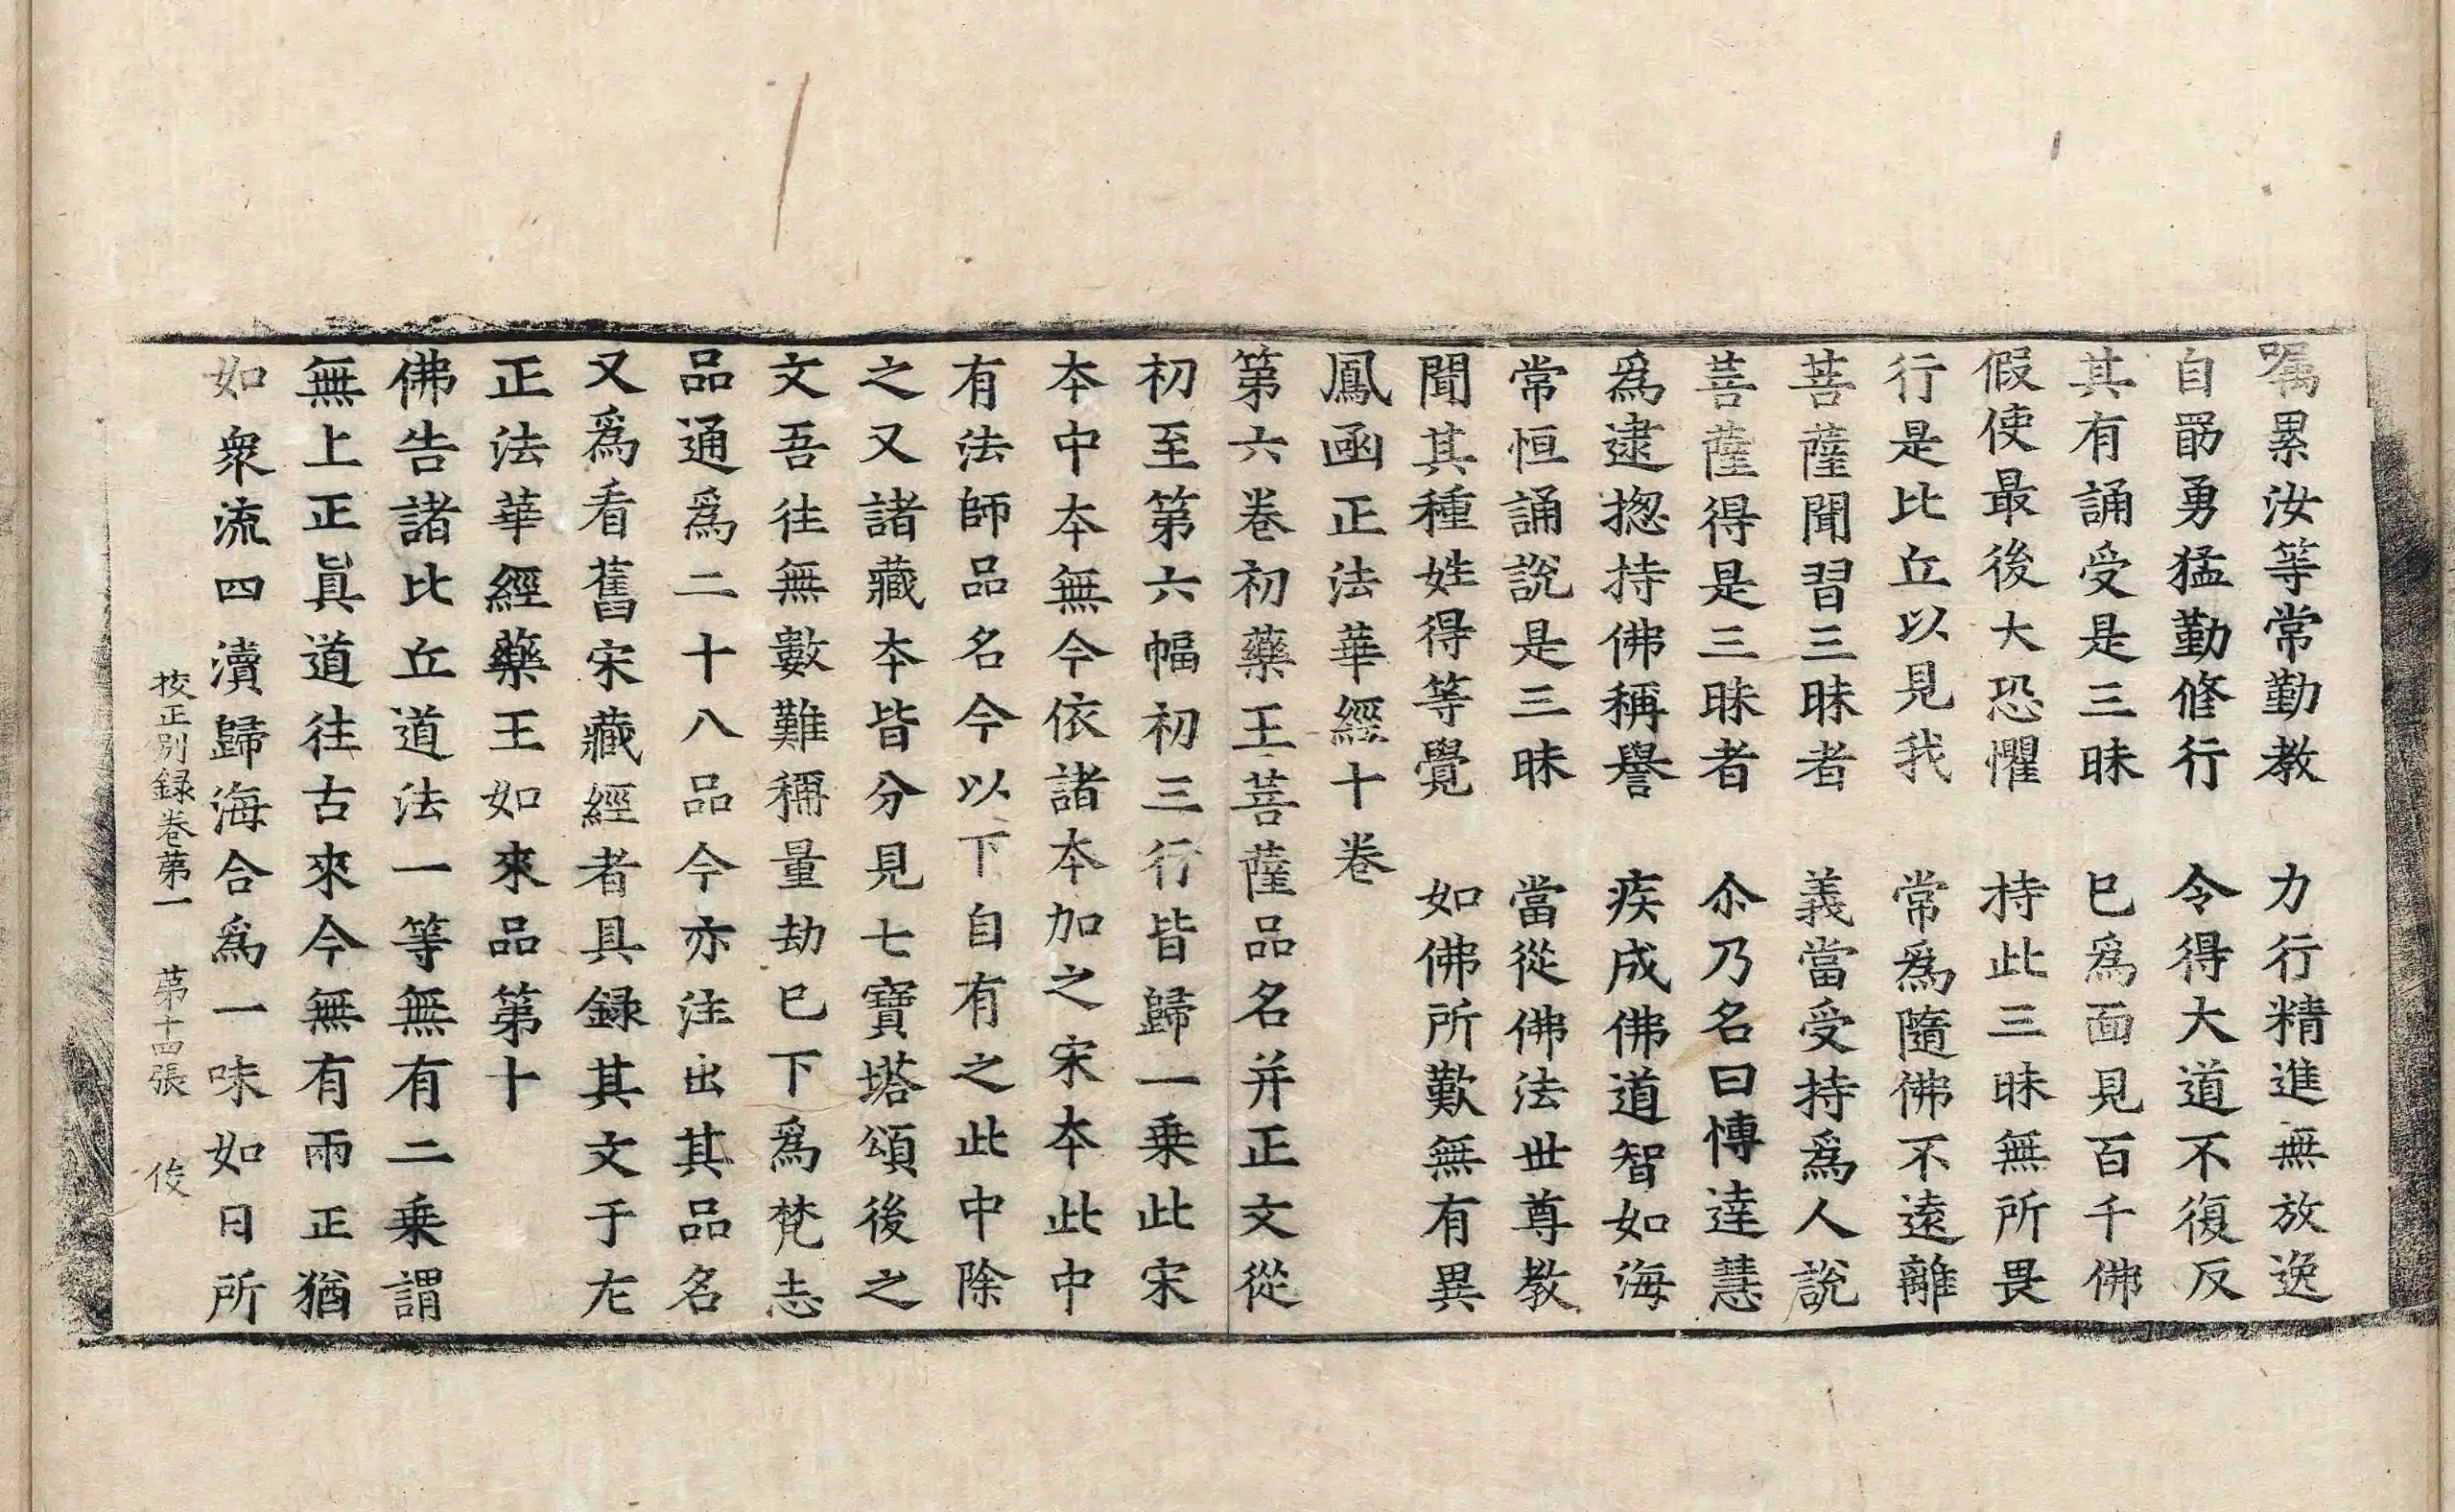 囑累汝等常勤教　力行精進無放逸
自勗勇猛勤修行　令得大道不復反
其有誦受是三昧　已爲面見百千佛
假使最後大恐懼　持此三昧無所畏
行是比丘以見我　常爲隨佛不遠離
菩薩聞習三昧者　義當受持爲人說
菩薩得是三昧者　尒乃名曰博達慧
爲逮揔持佛稱譽　疾成佛道智如海
常恒誦說是三昧　當從佛法世尊教
聞其種姓得等覺　如佛所歎無有異
鳳函正法華經十卷
第六卷初藥王菩薩品名并正文從
初至第六幅初三行皆歸一乗此宋
本中本無今依諸本加之宋本此中
有法師品名今以下自有之此中除
之又諸藏本皆分見七寶塔頌後之
文吾往無數難稱量劫已下爲梵志
品通爲二十八品今亦注出其品名
又爲看舊宋藏經者具録其文于左
正法華經藥王如來品第十
佛告諸比丘道法一等無有二乗謂
無上正真道往古來今無有兩正猶
如衆流四瀆歸海合爲一味如日所
挍正別録卷第一　第十四張　俊